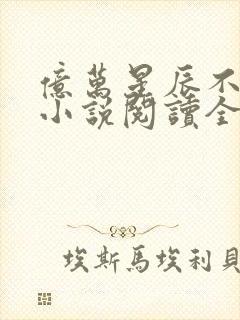 億萬星辰不
小說閱讀全
埃斯馬埃利貝